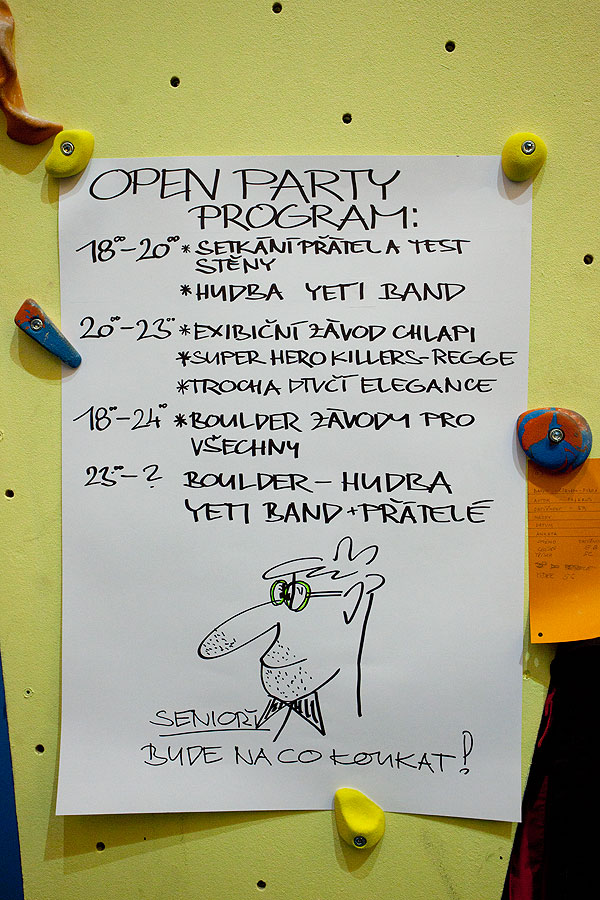 OPEN PARTY
PROGRAM:
18⁰⁰-20⁰⁰ *SETKÁNÍ PŘÁTEL A TEST
STĚNY
*HUDBA YETI BAND
20⁰⁰-23⁰⁰ *EXIBIČNÍ ZÁVOD CHLAPI
*SUPER HERO KILLERS-REGGE
*TROCHA DÍVČÍ ELEGANCE
18⁰⁰-24⁰⁰ *BOULDER ZÁVODY PRO
VŠECHNY
23⁰⁰-? BOULDER-HUDBA
YETI BAND+PŘÁTELÉ
SENIOŘI
BUDE NA CO KOUKAT!